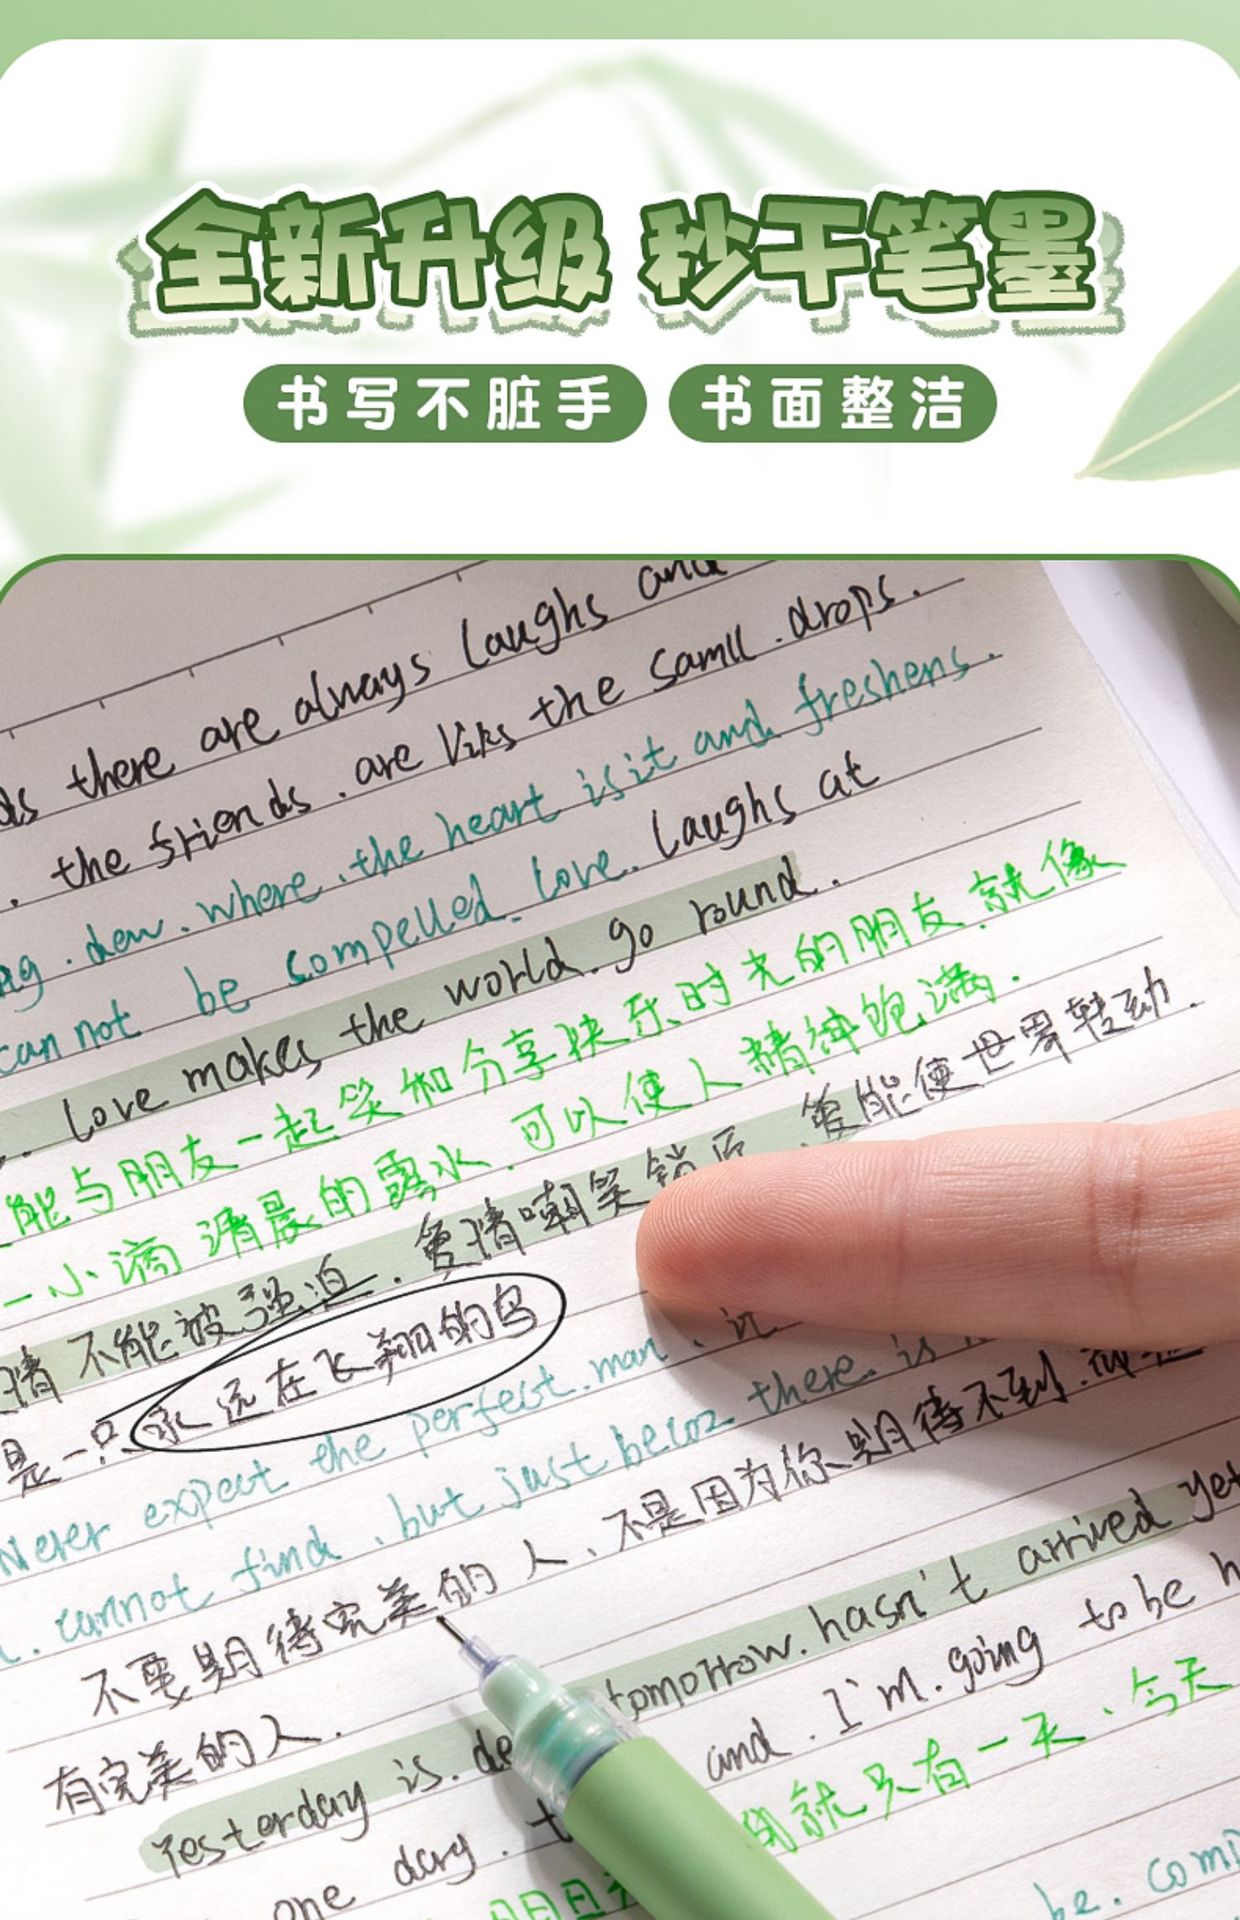 全新升级 秒干笔墨
书写不脏手 书面整洁
there are always laughs and
. the friends . are Likes the samll . drops.
. dew . where . the heart is it and freshens.
cannot be compelled. Love. Laughs at
. Love makes the world. go round.
能与朋友一起笑和分享快乐时光的朋友.就像
一小滴清晨的露水.可以使人精神饱满.
情不能被强迫.爱情嘲笑锁匠.爱能使世界转动.
是一只永远在飞翔的鸟
Never expect the perfect. man. . it
. cannot find . but just becoz there. is
不要期待完美的人、不是因为你期待不到.就是
有完美的人.
Yesterday is. de tomorrow. hasn't arrived yet
one day. and . I'm. going to be h
明日 就只有一天、今天
be. comp